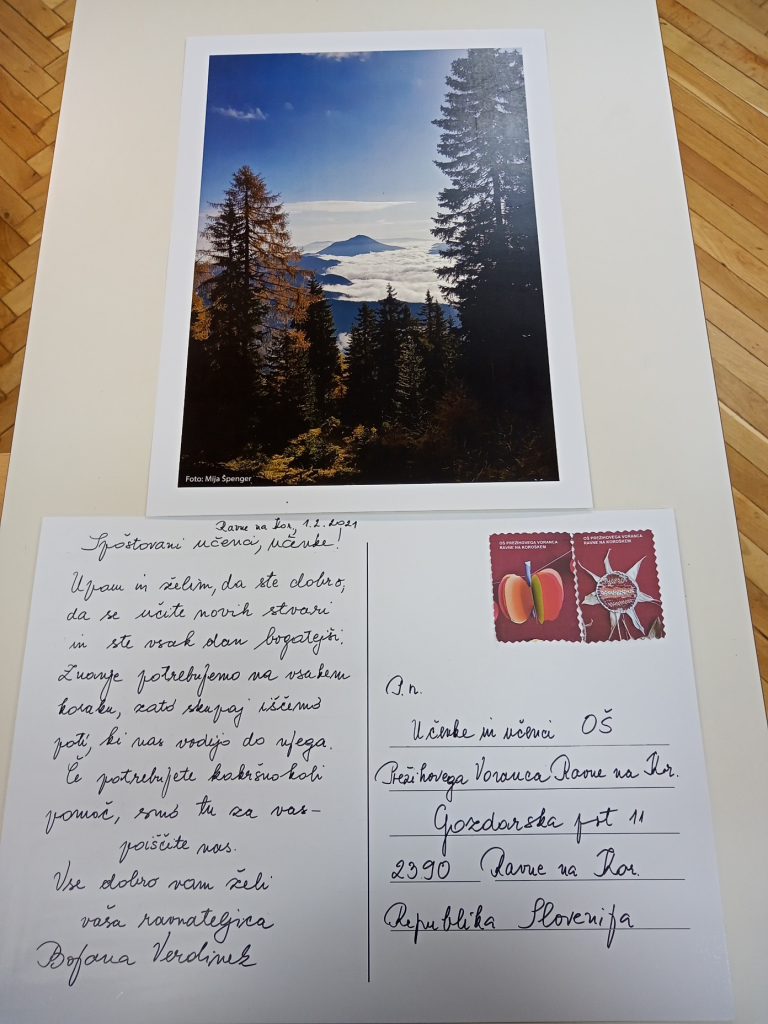 Foto: Mija Špenger
Ravne na Kor, 1.2.2021
Spoštovani učenci, učenke!
Upam in želim, da ste dobro,
da se učite novih stvari
in ste vsak dan bogatejši.
Znanje potrebujemo na vsakem
koraku, zato skupaj iščemo
poti, ki nas vodijo do njega.
Če potrebujete kakršnokoli
pomoč, smo tu za vas-
poiščite nas.
Vse dobro vam želi
vaša ravnateljica
Bojana Verdinek
OŠ PREŽIHOVEGA VORANCA
RAVNE NA KOROŠKEM
OŠ PREŽIHOVEGA VORANCA
RAVNE NA KOROŠKEM
P.n.
Učenke in učenci OŠ
Prežihovega Voranca Ravne na Kor.
Gozdarska pot 11
2390 Ravne na Kor.
Republika Slovenija